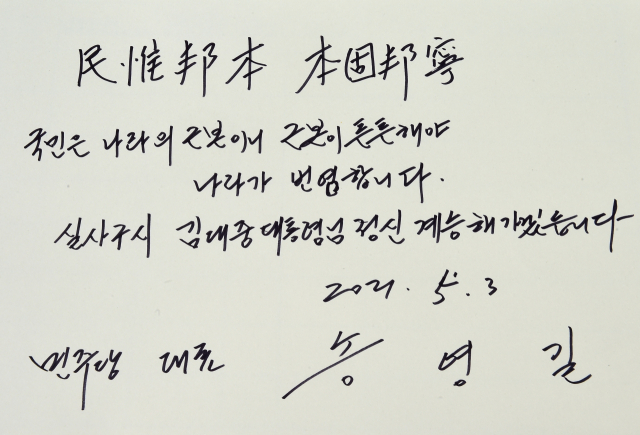 民惟邦本 本固邦寧
국민은 나라의 근본이니 근본이 튼튼해야
나라가 번영합니다.
실사구시 김대중대통령님 정신 계승해가겠습니다
2021. 5. 3
민주당 대표 송영길